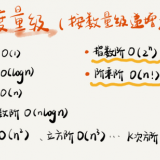 度量级（按数量级递增
O(1)
O(logn)
O(n)
数阶 O(nlogn)
O(n²)、立方阶 O(n³) … K次方阶
• 指数阶 O(2ⁿ)
• 阶乘阶 O(n!)